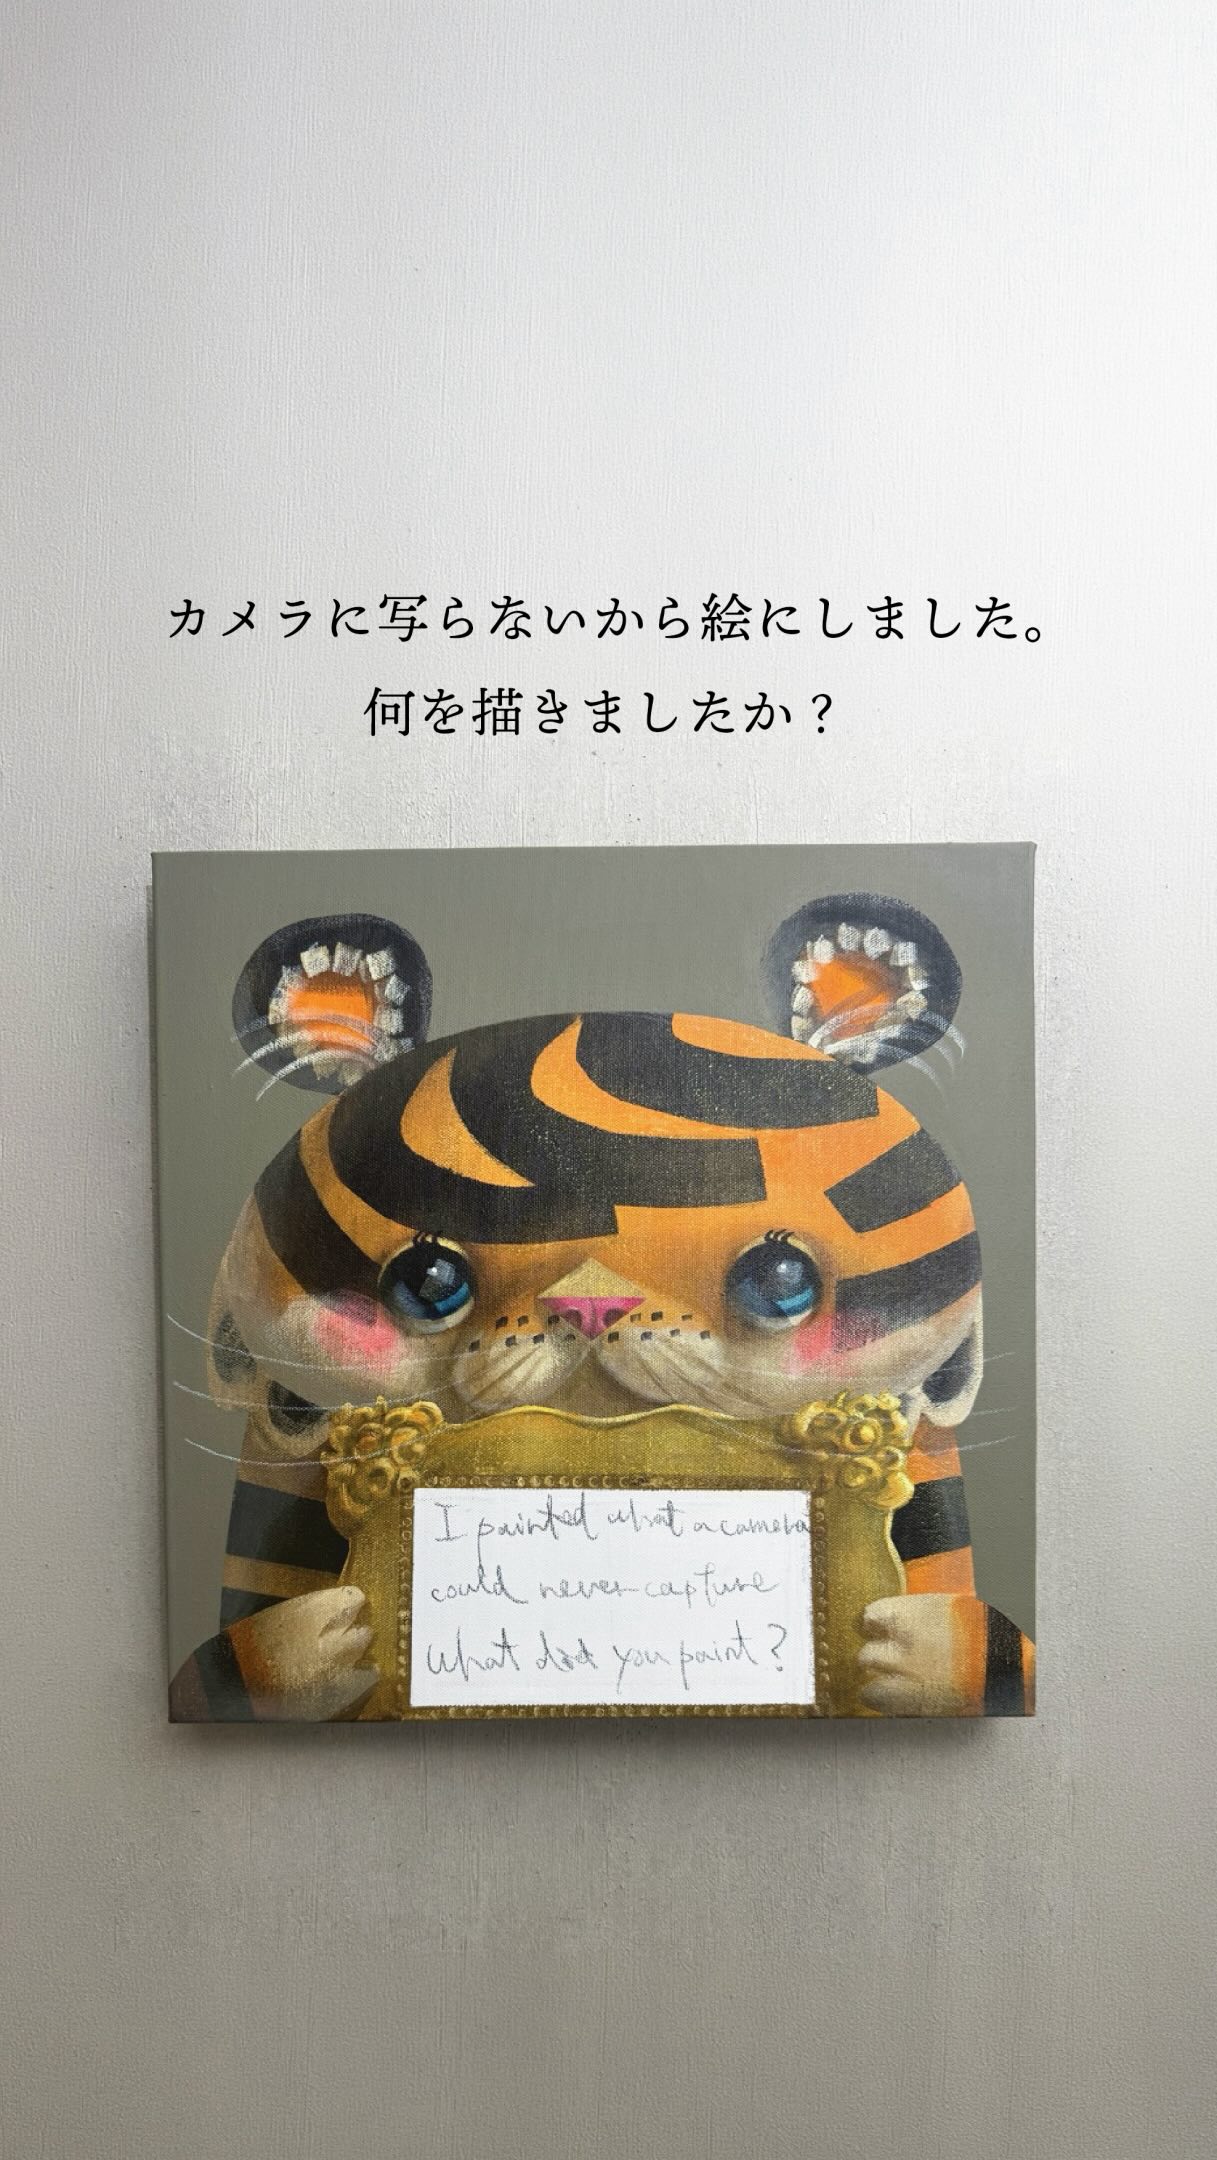 カメラに写らないから絵にしました。
何を描きましたか？
I painted what a camera
could never capture
What did you paint?